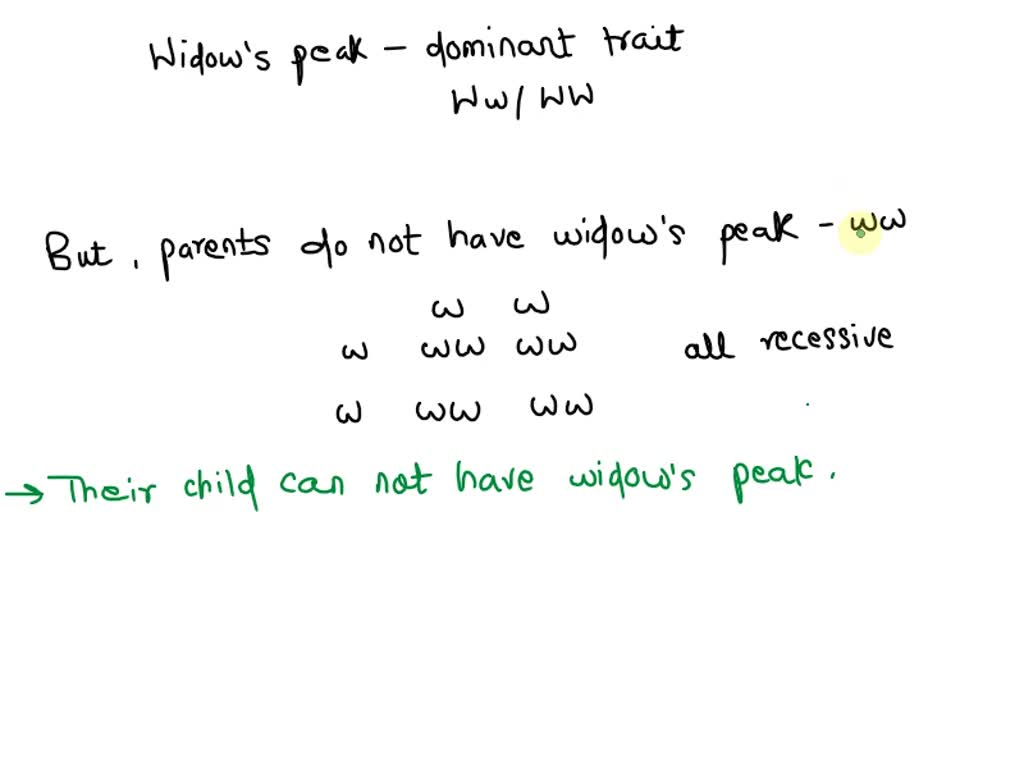 Widow's peak – dominant trait
Ww/WW
But, parents do not have widow's peak – ww
w w
w ww ww all recessive
w ww ww
→ Their child can not have widow's peak.